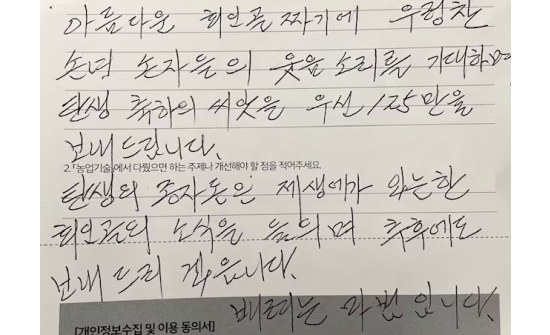 아름다운 회인골짜기에 우렁찬
손녀 손자들의 웃음 소리를 기대하며
탄생 축하의 씨앗을 우선 1장만을
보내 드립니다.
2.「농업기술」에서 다뤘으면 하는 주제나 개선해야 할 점을 적어주세요.
탄생의 종자돈은 제생에가 와는한
회인골의 소식을 들으며 추후에도
보내 드리 겠읍니다.
[개인정보수집 및 이용 동의서]
는 마법 입니다.